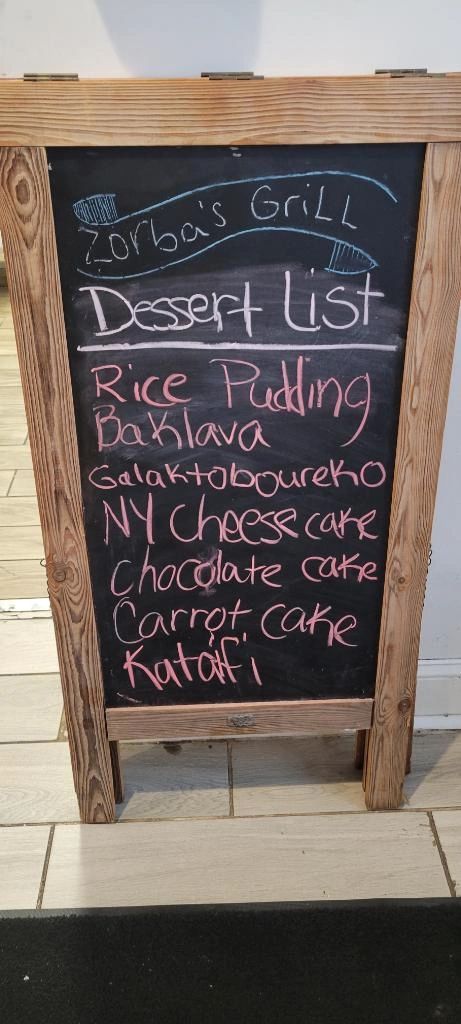 Zorba's GriLL
Dessert List
Rice Pudding
Baklava
Galaktoboureko
NY Cheese cake
Chocolate cake
Carrot cake
Kataifi